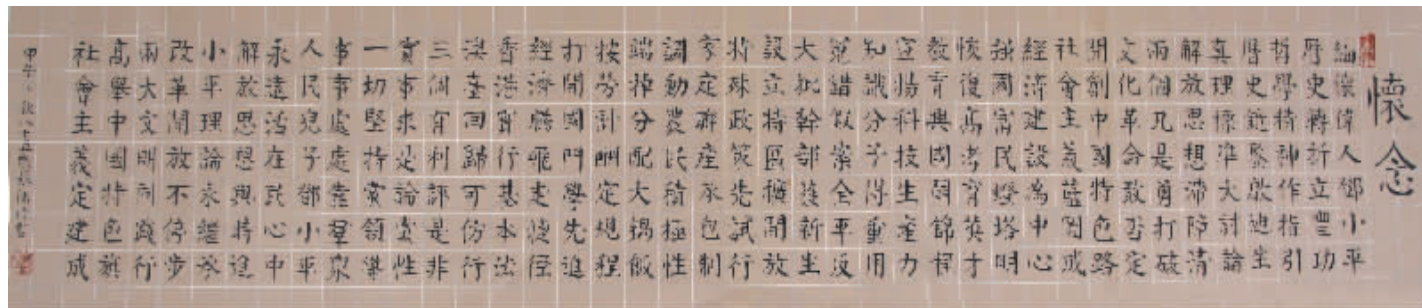 懷念
緬懷偉人鄧小平
歷史轉折立豐功
哲學精神作指引
歷史經驗啟迪生
真理標準大討論
解放思想清
兩個凡是勇打破
文化革命敢否定
開創中國特色路
社會主義藍圖成
經濟建設為中心
強國富民燈塔明
恢復高考育英才
教育興國錦程
宣揚科技生產力
知識分子得重用
冤錯假案全平反
大批幹部獲新生
設立特區擴開放
特殊政策先試行
家庭聯產承包制
調動農民積極性
端掉分配大鍋飯
按勞計酬定規程
打開國門學先進
經濟騰飛走捷徑
香港實行基本法
澳臺回歸可仿行
三個有利評是非
實事求是論實性
一切堅持黨領導
事事處處靠羣眾
人民兒子鄧小平
永遠活在民心中
解放思想與時進
小平理論永繼承
改革開放不停步
兩大文明踐行
高舉中國特色旗
社會主義定建成
甲午